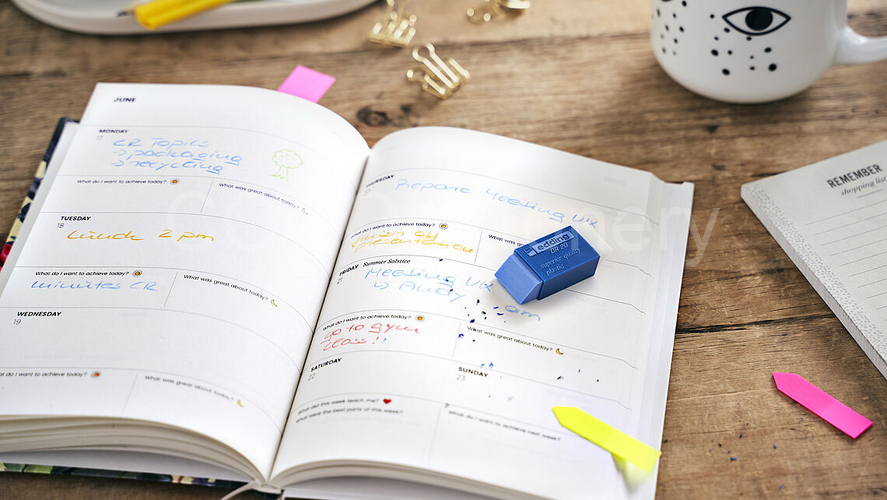 JUNE
MONDAY
17
CR Topics
-> packaging
-> recycling
What do I want to achieve today?
What was great about today?
TUESDAY
18
Lunch 2 pm
What do I want to achieve today?
What was great about today?
minutes CR
WEDNESDAY
19
What do I want to achieve today?
What was great about today?
THURSDAY
Prepare Meeting
What do I want to achieve today?
What was
presentation
FRIDAY Summer Solstice
21
Meeting
What do I want to achieve today?
What was great about today?
go to gym
class!!
SATURDAY
22
SUNDAY
23
What did this week teach me?
What were the best parts of this week?
What do I want to achieve next week?
edding
DR 20
superior quality
plastic
REMEMBER
shopping list